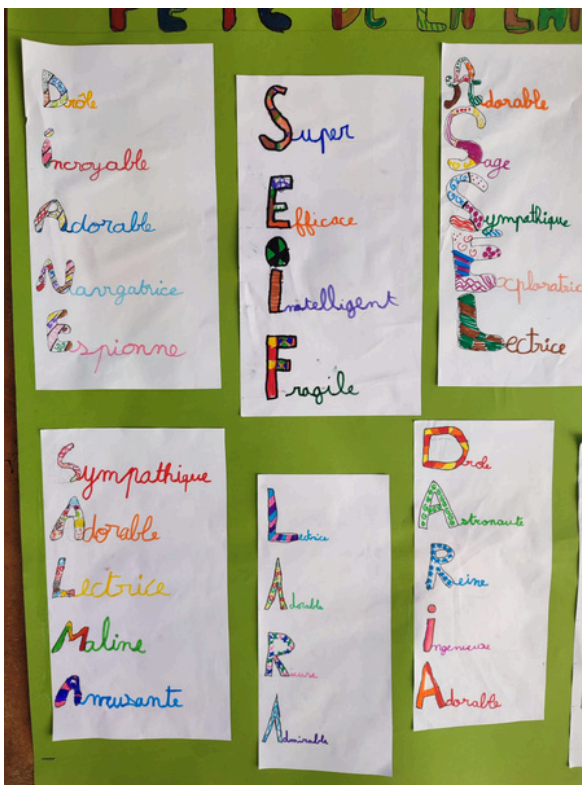 FETE DE LA
Drôle
incroyable
Adorable
Navigatrice
Espionne
Super
Efficace
Intelligent
Fragile
Adorable
Sage
Sympathique
Exploratric
Lectrice
Sympathique
Adorable
Lectrice
Maline
Amusante
Lectrice
Adorable
Admirable
Drole
Astronaute
Reine
Adorable